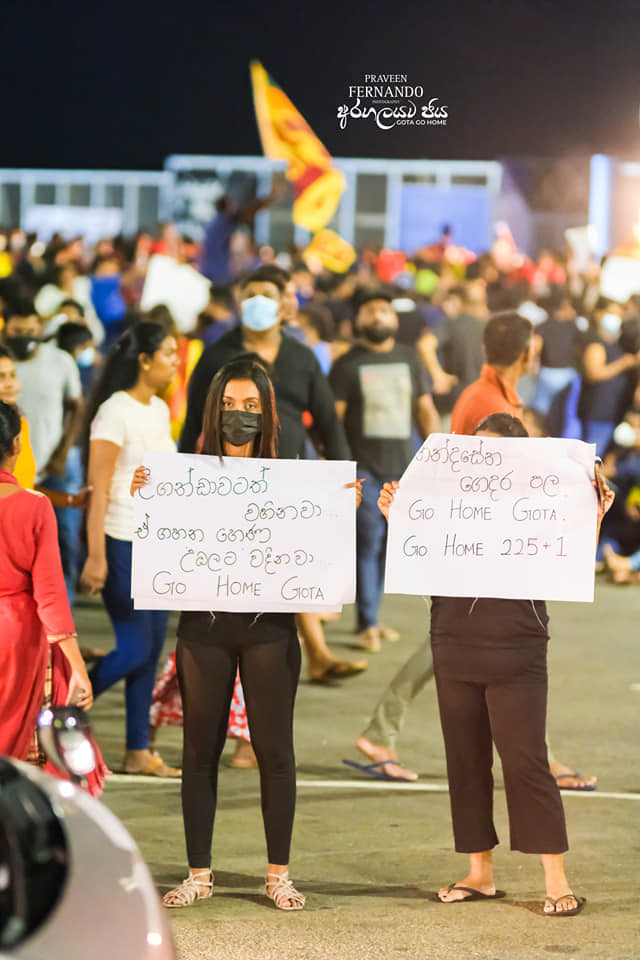 PRAVEEN
FERNANDO
PHOTOGRAPHY
අරගලයට ජය
GOTA GO HOME
උගන්ඩාවටත්
වහිනවා...
ඒ ගහන හෙණ
උඹලට වදිනවා...
GO HOME GOTA
ගන්දසේන
ගෙදර පල.
GO HOME GOTA.
GO HOME 225+1